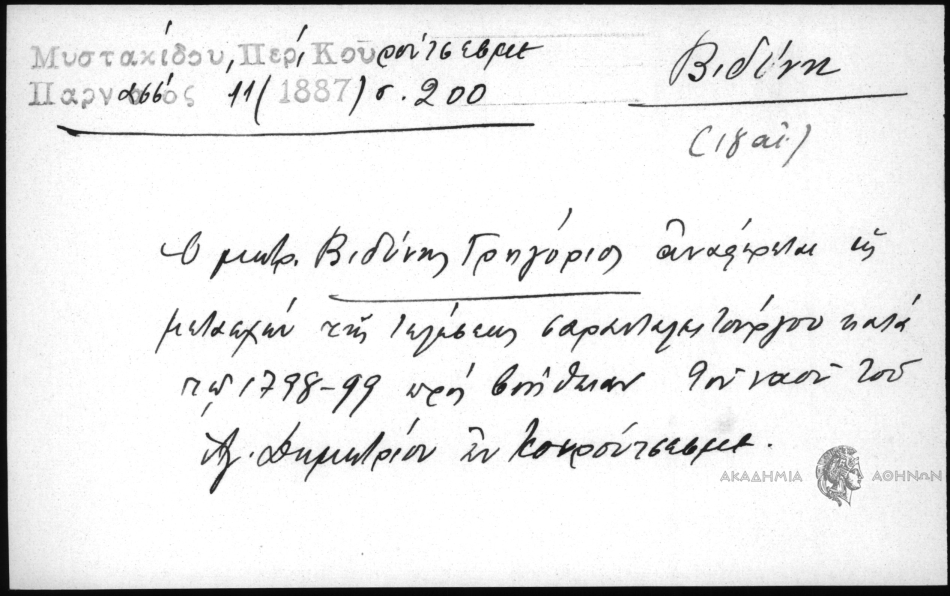 Μυστακίδου, Περί Κουρούτσεσμε
Παρνασσός 11 (1887) σ. 200
Βιδύνη
(18 αἰ.)
Ὁ μητρ. Βιδύνης Γρηγόριος ἀναφέρεται ὡς
μετασχών τῆς τελέσεως σαρανταλειτούργου κατά
τό 1798-99 πρός βοήθειαν τοῦ ναοῦ τοῦ
Ἁγ. Δημητρίου ἐν Κουρούτσεσμε.
ΑΚΑΔΗΜΙΑ ΑΘΗΝΩΝ